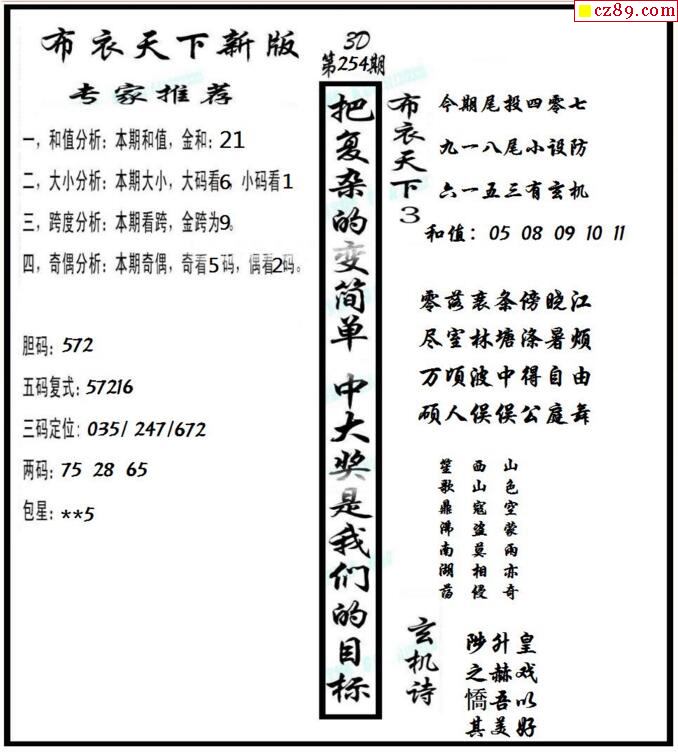 cz89.com
布衣天下新版
专家推荐
一，和值分析：本期和值，金和：21
二，大小分析：本期大小，大码看6，小码看1
三，跨度分析：本期看跨，金跨为9。
四，奇偶分析：本期奇偶，奇看5码，偶看2码。
胆码：572
五码复式：57216
三码定位：035/ 247/672
两码：75 28 65
包星：**5
3D
第254期
把复杂的变简单 中大奖是我们的目标
布衣天下3
今期尾投四零七
九一八尾小设防
六一五三有玄机
和值：05 08 09 10 11
零落衰条傍晓江
尽室林塘涤暑烦
万顷波中得自由
硕人俣俣公庭舞
山色空蒙雨亦奇
西山寇盗莫相侵
笙歌鼎沸南湖荡
玄机诗
皇戏以好
升赫吾美
陟之憍其